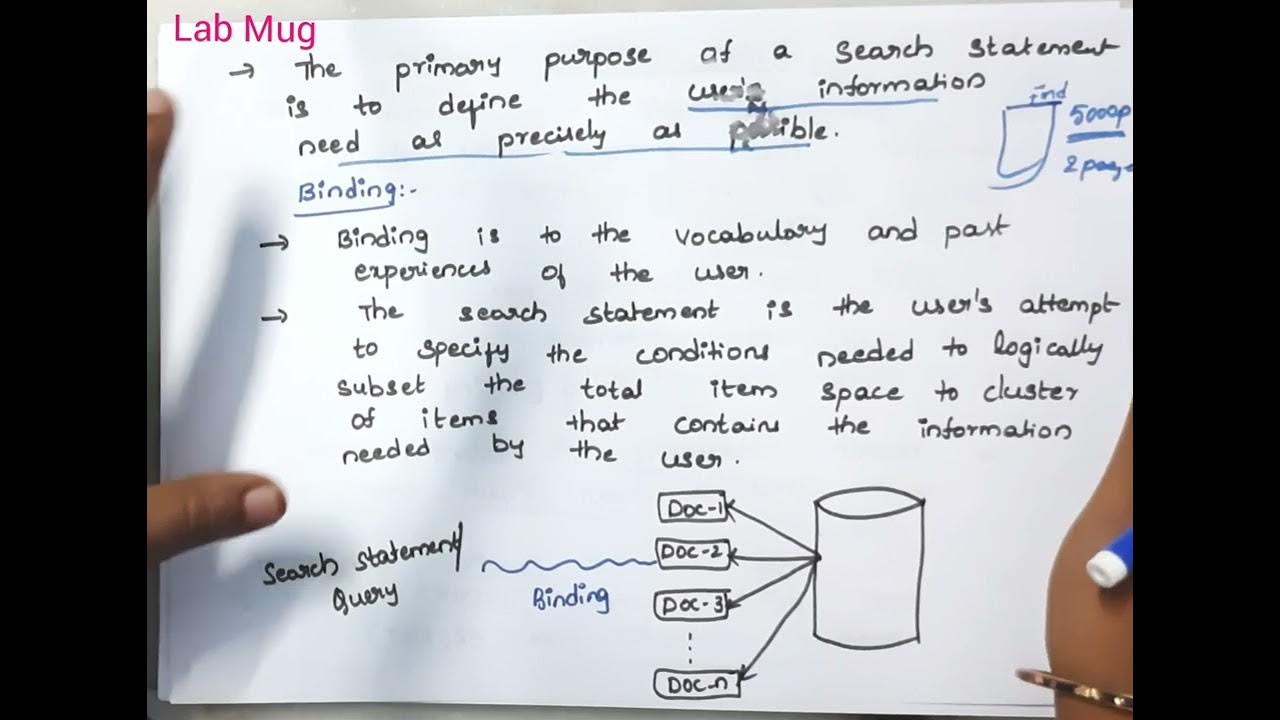 Lab Mug
→ The primary purpose of a search statement
is to define the user's information
need as precisely as possible.
Find
5000p
2 pag
Binding:-
→ Binding is to the vocabulary and past
experiences of the user.
→ The search statement is the user's attempt
to specify the conditions needed to logically
subset the total item space to cluster
of items that contains the information
needed by the user.
Search statement/
Query
Binding
DOC-1
DOC-2
DOC-3
DOC-n